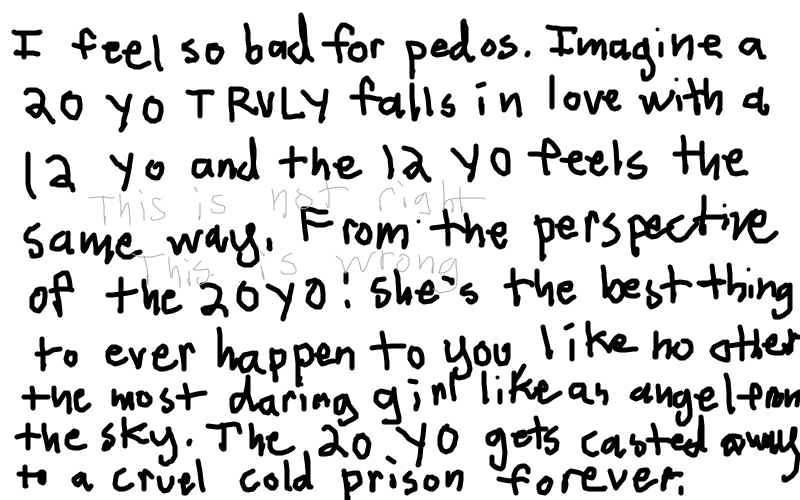 I feel so bad for pedos. Imagine a
20 yo TRULY falls in love with a
12 yo and the 12 yo feels the
This is not right
same way. From the perspective
This is wrong
of the 20 yo: she's the best thing
to ever happen to you, like no other
the most daring girl like an angel from
the sky. The 20 yo gets casted away
to a cruel cold prison forever.